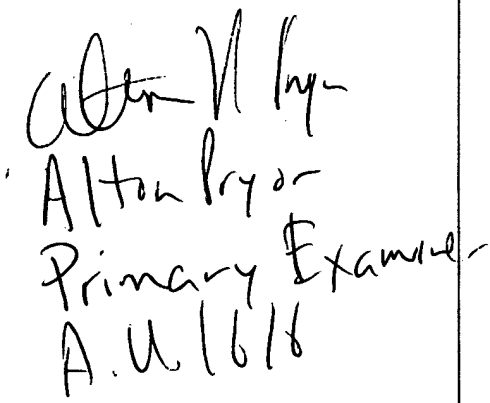 Alton N Pryor
Alton Pryor
Primary Examiner
A.U. 1616